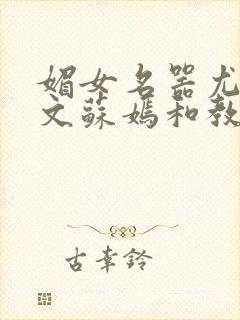 媚女名器尤
文蘇媽和教
古幸鈴